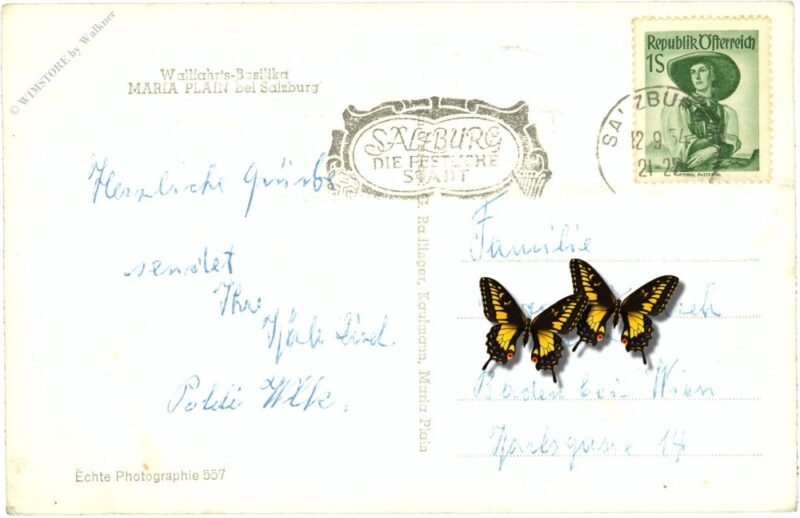 © WIMSTORE by Walkner
Wallfahrts-Basilika
MARIA PLAIN bei Salzburg
SALZBURG
DIE FESTLICHE
STADT
Republik Österreich
1S
SALZBURG
12.9.54
21-22
Herzliche Grüsse
sendet
Ihre
Poldi
Echte Photographie 557
Raflinger, Kaufmann, Maria Plain
Familie
Baden bei Wien
14